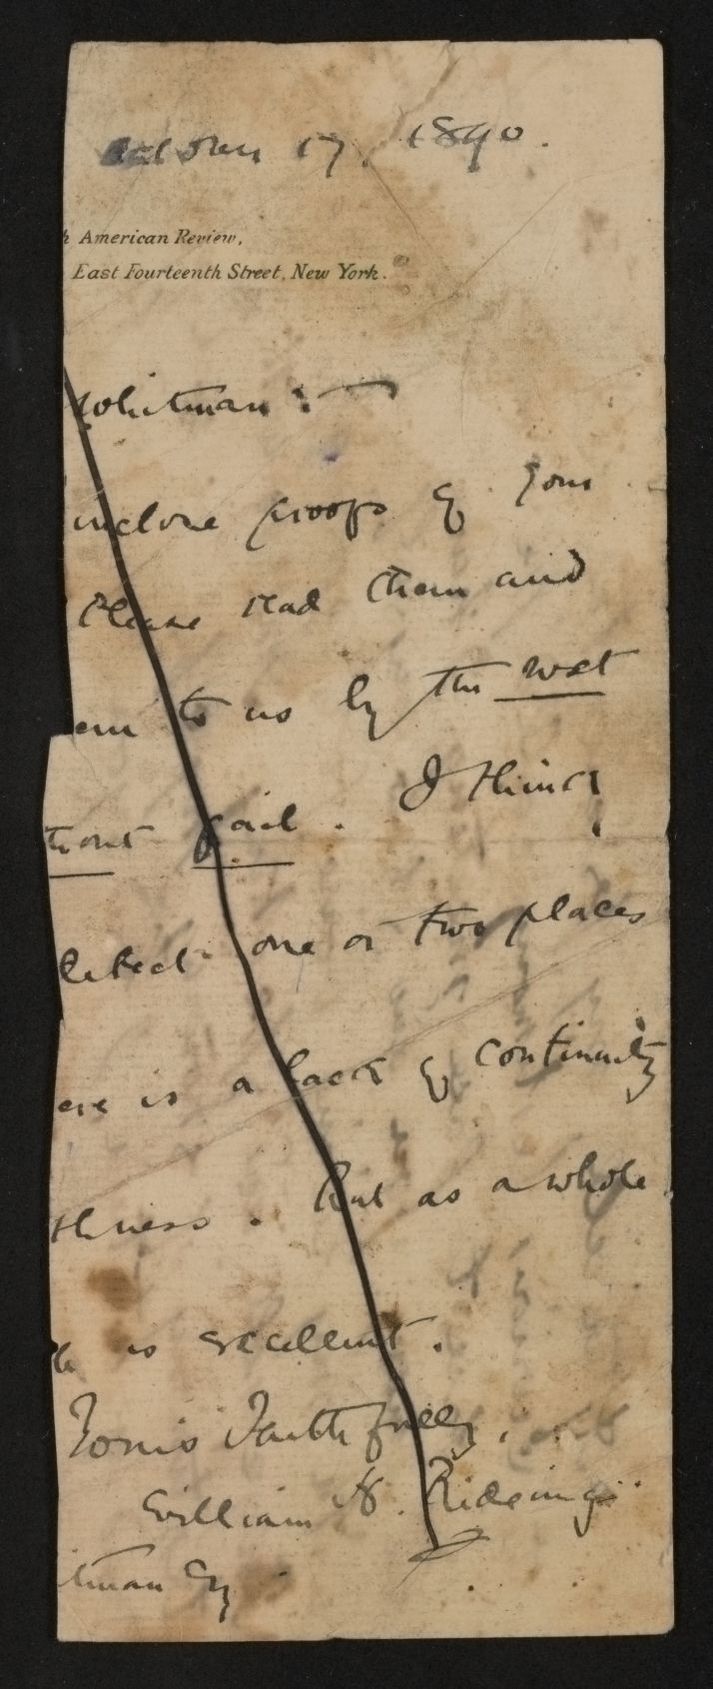 October 17, 1890.
h American Review,
East Fourteenth Street, New York.
Whitman :—
inclose proofs of your
Please read them and
em to us by the next
thout fail. I think
detect one or two places
ere is a lack of continuity
thness. But as a whole
le is excellent.
Yours Faithfully,
William H. Rideing
itman Esq